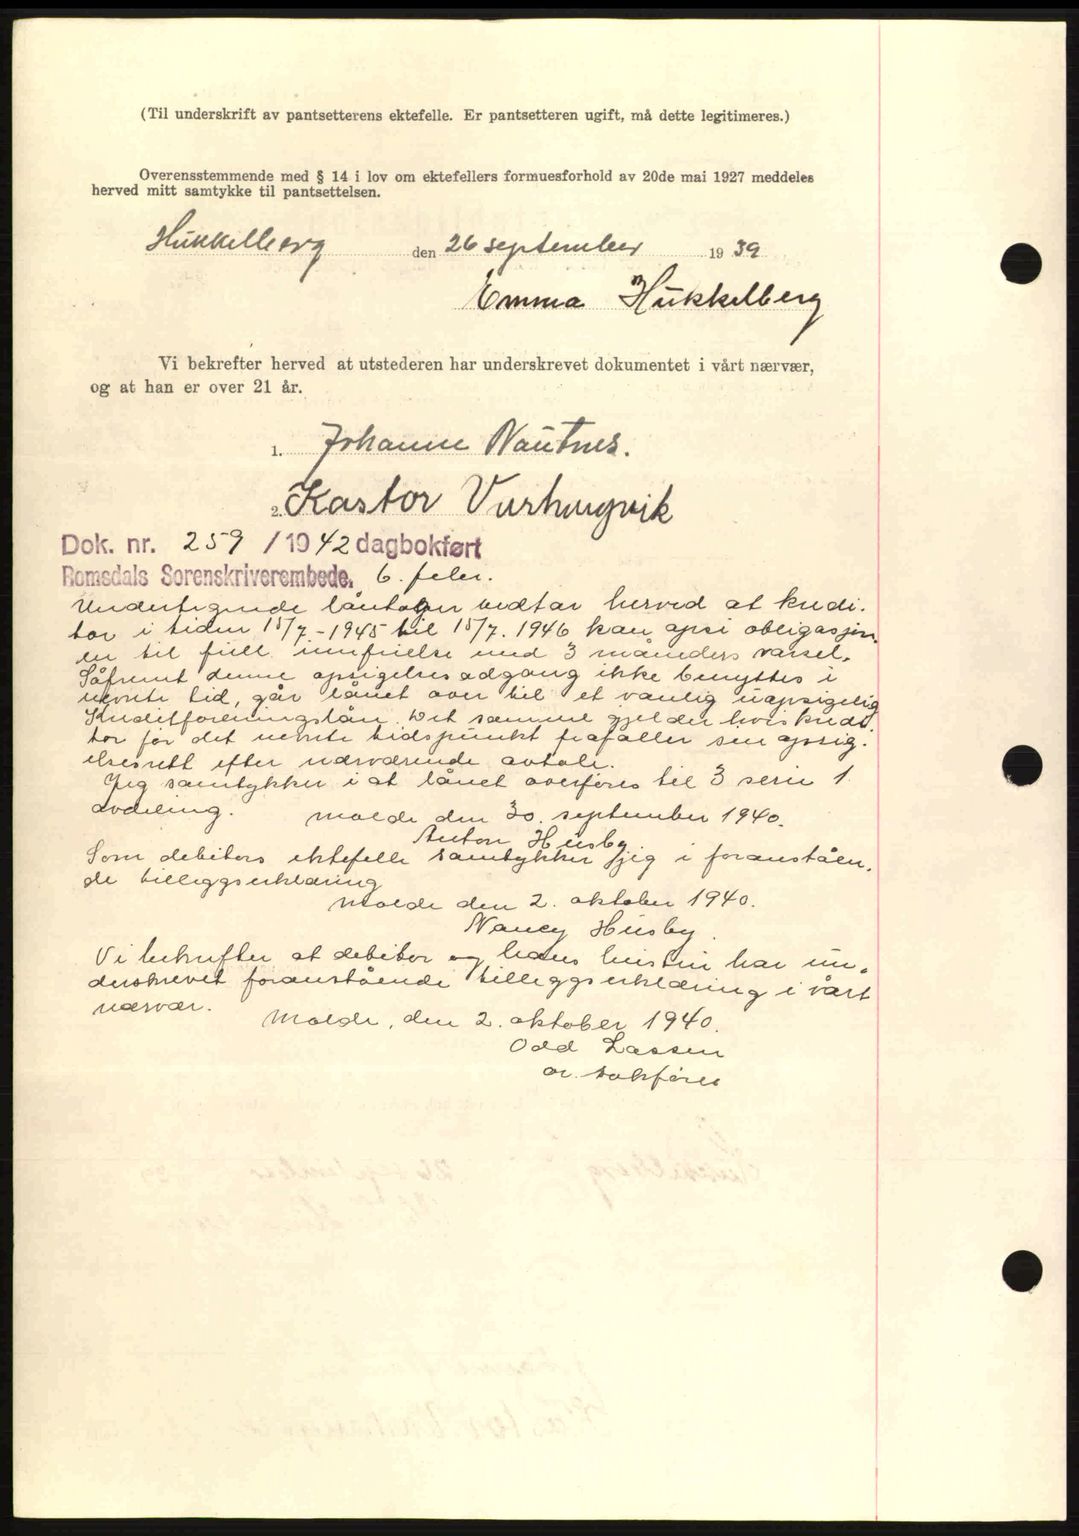 (Til underskrift av pantsetterens ektefelle. Er pantsetteren ugift, må dette legitimeres.)
Overensstemmende med § 14 i lov om ektefellers formuesforhold av 20de mai 1927 meddeles
herved mitt samtykke til pantsettelsen.
Hukkelberg den 26 september 1939
Emma Hukkelberg
Vi bekrefter herved at utstederen har underskrevet dokumentet i vårt nærvær,
og at han er over 21 år.
1. Johanne Nautnes.
2. Kastor
Dok. nr. 259 / 1942 dagbokført
Romsdals Sorenskriverembede. 6. febr.
Undertegnede låntager vedtar herved at kredi-
tor i tiden 15/7-1945 til 15/7. 1946 kan opsi obligasjon.
en til full innfrielse med 3 måneders varsel.
Såfremt denne opsigelsesadgang ikke benyttes i
nevnte tid, går lånet over til et vanlig uopsigelig
Kreditforeningslån. Det samme gjelder hvis kredi-
tor før det nevnte tidspunkt frafaller sin opsig-
elsesrett efter nærværende avtale.
Jeg samtykker i at lånet overføres til 3 serie 1
avdeling. Molde den 30. september 1940.
Anton Husby
Som debitors ektefelle samtykker jeg i foranståen-
de tilleggserklæring
Molde den 2. oktober 1940.
Nancy Husby.
Vi bekrefter at debitor og hans hustru har un-
derskrevet foranstående tilleggserklæring i vårt
nærvær.
Molde, den 2. oktober 1940.
Odd Lassen
or. sakfører